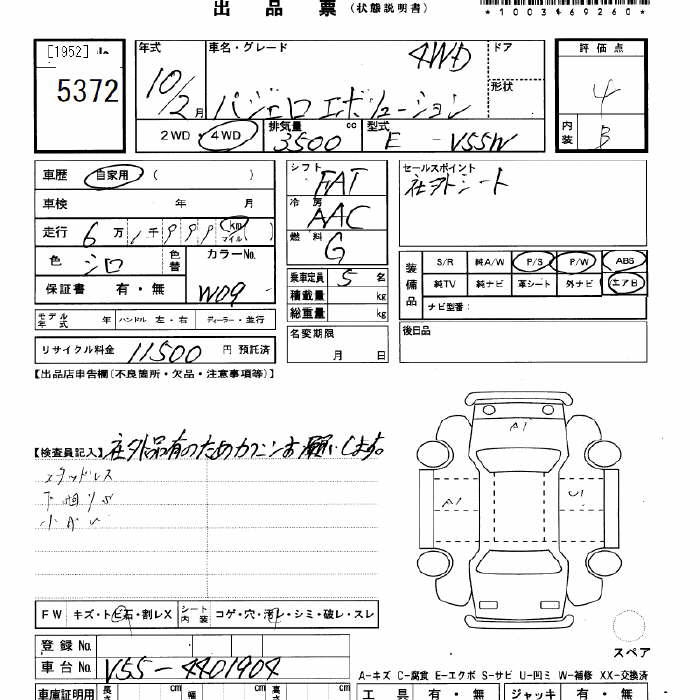 出品票（状態説明書）
*1003469260*
[1952]
5372
年式 車名・グレード 4WD ドア
10/2月 パジェロ エボリューション 形状
2WD・4WD 排気量 3500 cc 型式 E - V55W
評価点 4
内装 B
車歴 自家用 （ ）
車検 年 月
走行 6万1千999 km マイル ( )
色 シロ 色替 カラーNo. W09
保証書 有・無
モデル年式 年 ハンドル 左・右 ディーラー・並行
リサイクル料金 11500 円 預託済
シフト FAT
冷房 AAC
燃料 G
乗車定員 5 名
積載量 kg
総重量 kg
名変期限
月 日
セールスポイント
社外シート
装備品 S/R 純A/W P/S P/W ABS
純TV 純ナビ 革シート 外ナビ エアB
ナビ型番：
後日品
【出品店申告欄（不良箇所・欠品・注意事項等）】
【検査員記入】社外品有のためカクニンお願いします。
スタッドレス
下廻りサビ
A1
A1
U1
FW キズ・トビ石・割レX シート内装 コゲ・穴・汚レ・シミ・破レ・スレ
登録No.
車台No. V55-4401904
スペア
A-キズ C-腐食 E-エクボ S-サビ U-凹ミ W-補修 XX-交換済
車庫証明用 長さ cm 幅 cm 高さ cm
工具 有・無 ジャッキ 有・無